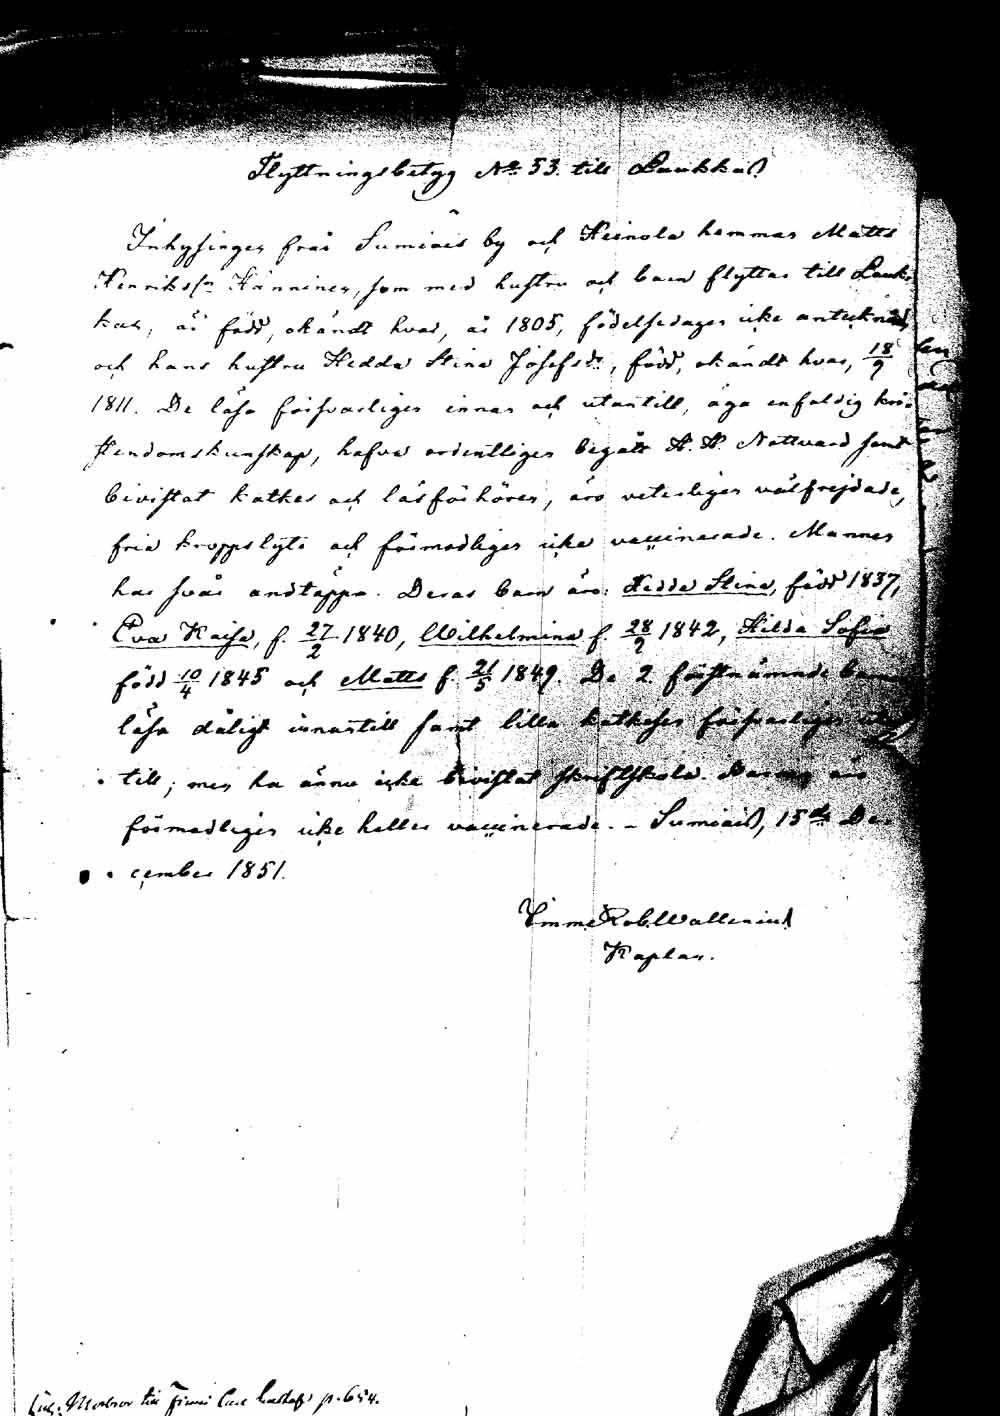 Flyttningsbetyg No 53. till Laukkas.
Inhysingen från Sumiais by och Heinola hemman Matts
Henriksson Hänninen, som med hustru och barn flyttar till Lauk-
kas, är född, okändt hvar, år 1805, födelsedagen icke antecknad,
och hans hustru Hedda Stina Josefsdr, född, okändt hvar, 18/9
1811. De läsa försvarligen innan och utantill, äga enfaldig kri-
stendomskunskap, hafva ordentligen begått H. H. Nattvard samt
bevistat katkes och läsförhören, äro veterligen välfrejdade,
fria kroppslyte och förmodligen icke vaccinerade. Mannen
har svår andtäppa. Deras barn äro: Hedda Stina, född 1837,
Eva Kaisa, f. 27/2 1840, Wilhelmina f. 28/9 1842, Hilda Sofia
född 10/4 1845 och Matts f. 21/5 1849. De 2 förstnämnde barnen
läsa dåligt innantill samt lilla katkesen försvarligen utan
till; men ha ännu icke bevistat skriftskola. Barnen äro
förmodligen icke heller vaccinerade. - Sumiais, 15de De-
cember 1851.
Emme Rob. Wallenius
Kaplan.
p. 654.